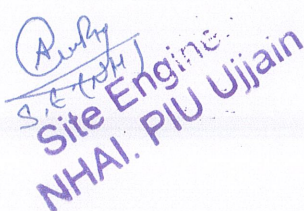 S.E (NH)
Site Engine
NHAI. PIU Ujjain